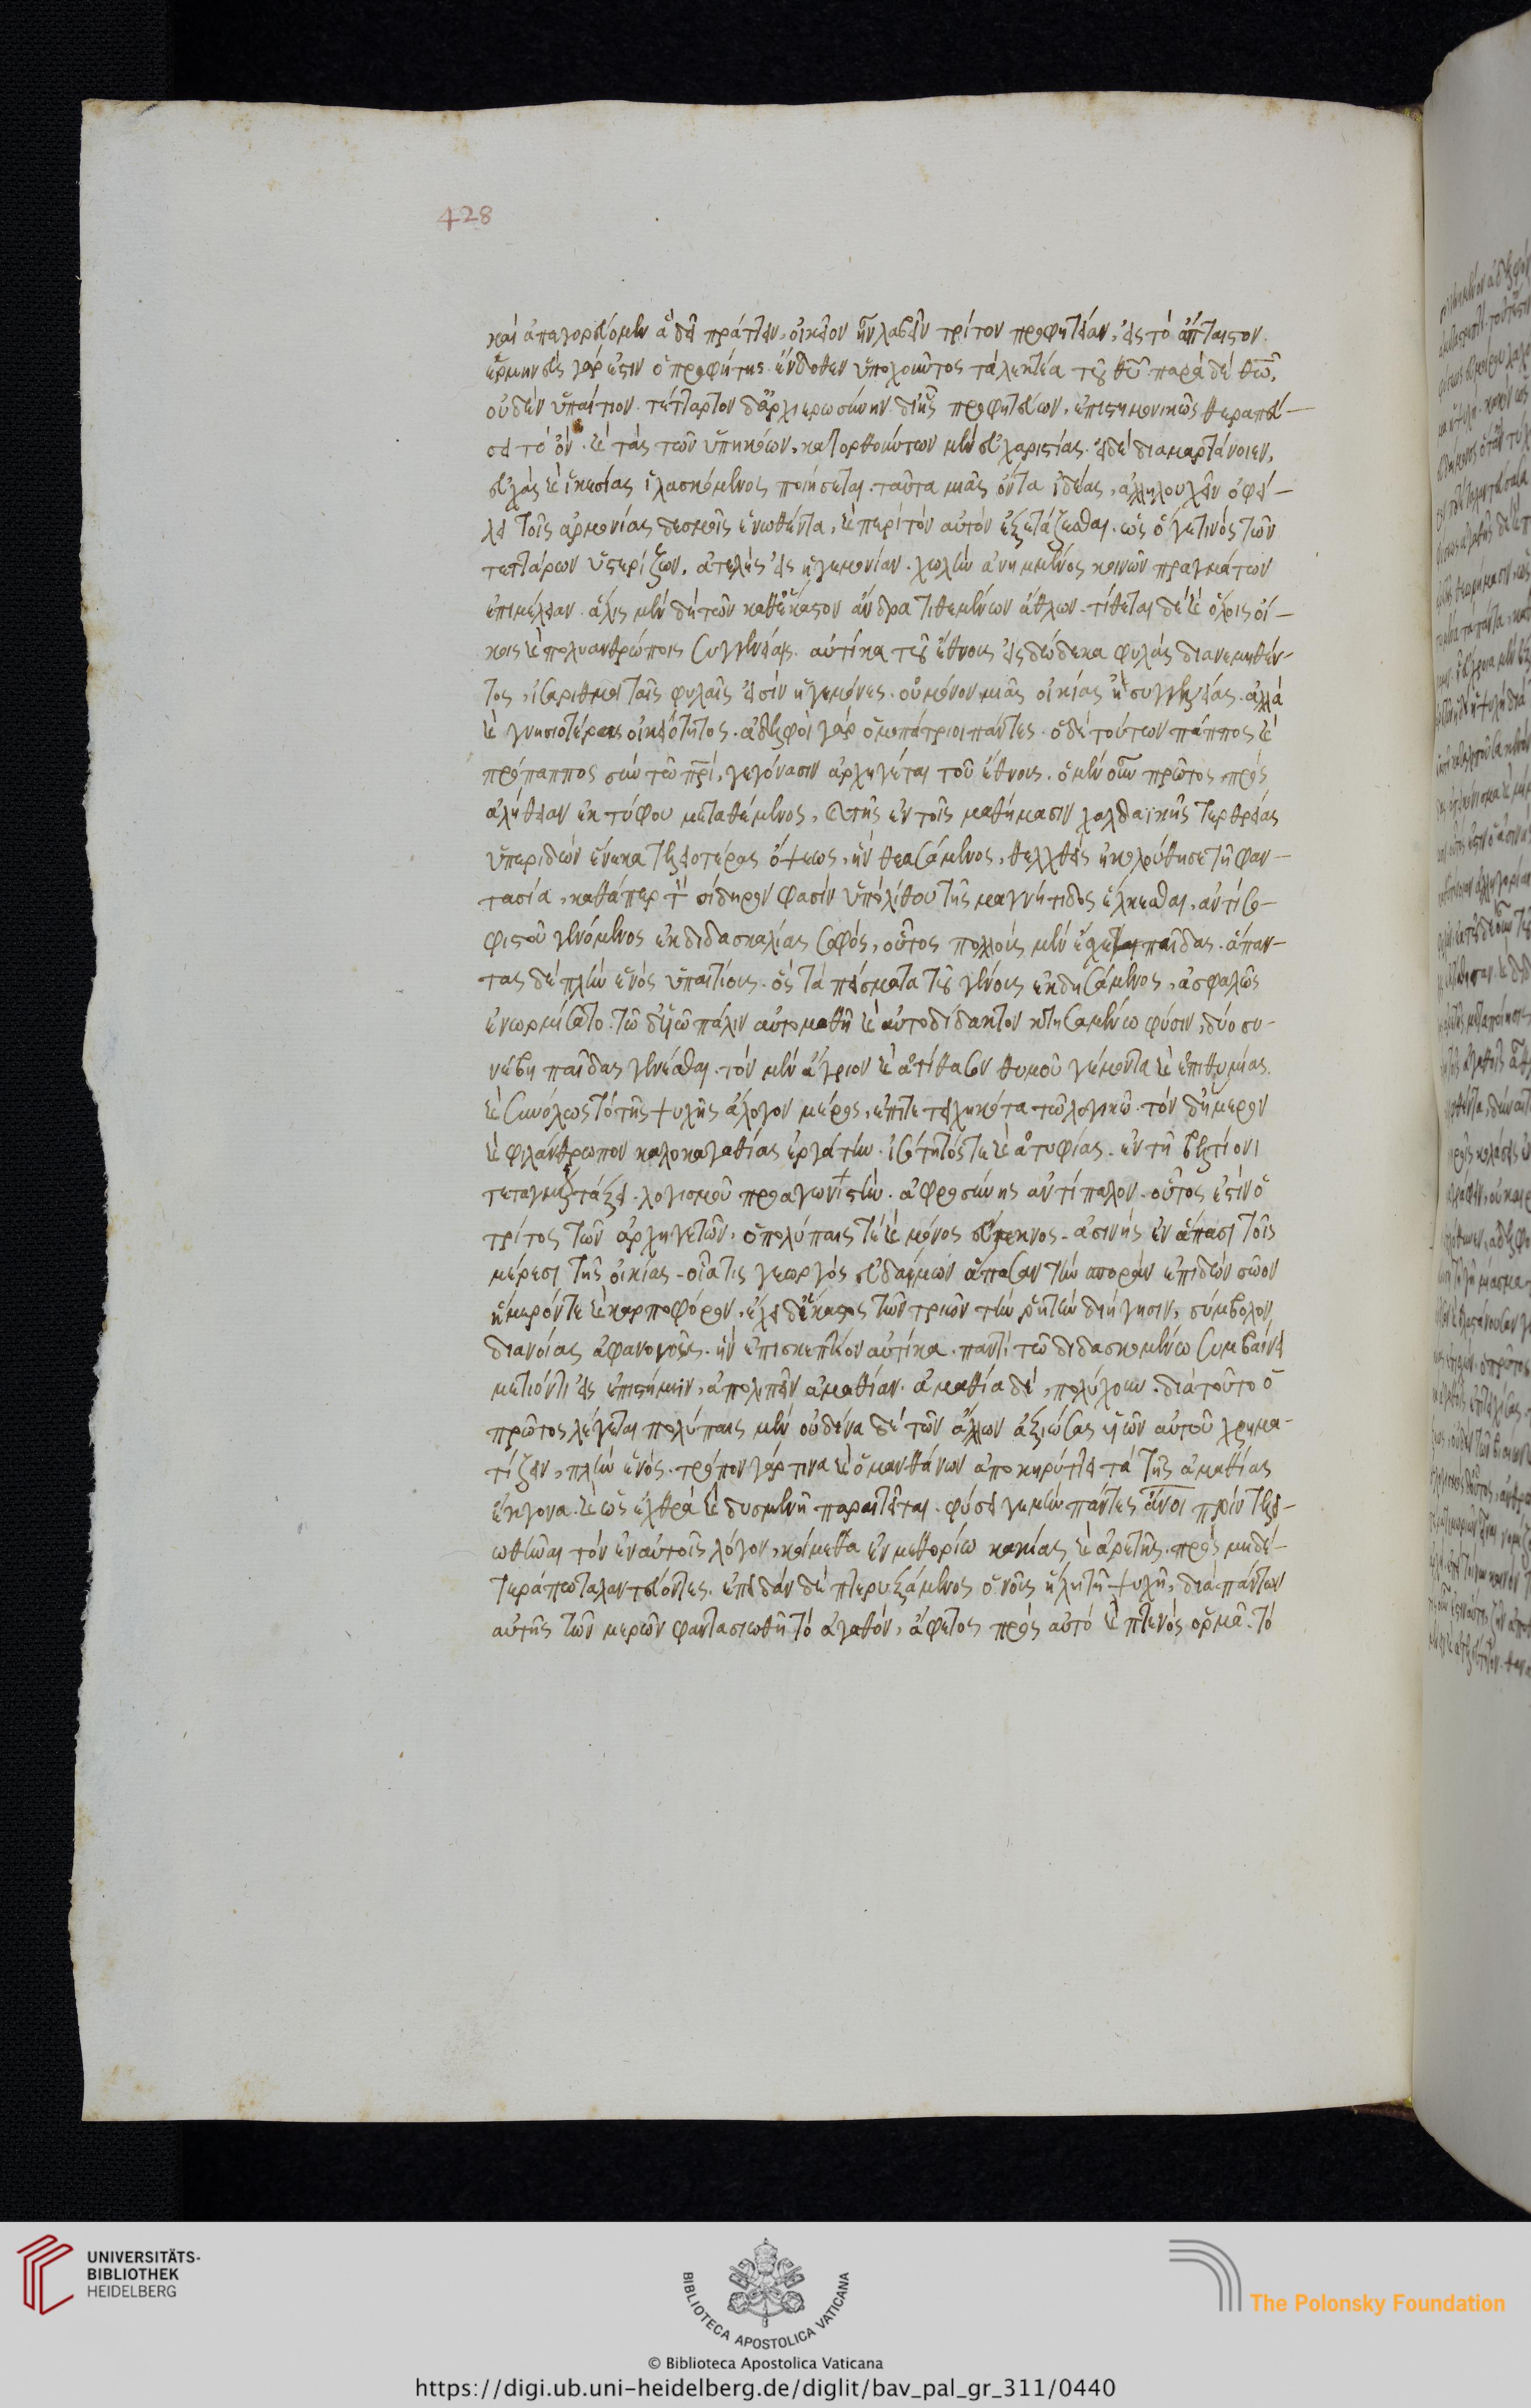 428
καὶ ἀπαγορεύομεν ἃ δεῖ πράττειν. οἰκεῖον ἦν λαβεῖν τρίτον προφητείαν, εἰς τὸ ἄπταιστον.
ἑρμηνεὺς γάρ ἐστιν ὁ προφήτης ἔνδοθεν ὑπηχοῦντος τὰ λεκτέα τοῦ θῦ παρὰ δὲ θῶ,
οὐδὲν ὑπαίτιον. τέταρτον δ' ἀρχιερωσύνην δι' ἧς προφητεύων, ἐπιστημονικῶς θεραπεύ-
σει τὸ ὄν. καὶ τὰς τῶν ὑπηκόων, κατορθούντων μὲν εὐχαριστίας. εἰ δὲ διαμαρτάνοιεν,
εὐχὰς καὶ ἱκεσίας ἱλασκόμενος ποιήσεται. ταῦτα μιᾶς ὄντα ἰδέας, ἀλληλουχεῖν ὀφεί-
λει τοῖς ἁρμονίας δεσμοῖς ἑνωθέντα, καὶ περὶ τὸν αὐτὸν ἐξετάζεσθαι. ὡς ὅγε τινὸς τῶν
τεττάρων ὑστερίζων, ἀτελὴς εἰς ἡγεμονίαν. χωλὴν ἀνημμένος κοινῶν πραγμάτων
ἐπιμέλειαν. ἅλις μὲν δὴ τῶν καθ' ἕκαστον ἄνδρα τιθεμένων ἄθλων. τίθεται δὲ καὶ ὅλοις οἴ-
κοις καὶ πολυανθρώποις συγγενείαις. αὐτίκα τοῦ ἔθνους εἰς δώδεκα φυλὰς διανεμηθέν-
τος, ἰσάριθμοι ταῖς φυλαῖς εἰσὶν ἡγεμόνες. οὐ μόνον μιᾶς οἰκίας ἢ συγγενείας. ἀλλὰ
καὶ γνησιωτέρας οἰκειότητος. ἀδελφοὶ γὰρ ὁμοπάτριοι πάντες. ὁ δὲ τούτων πάππος καὶ
πρόπαππος σὺν τῶ πρὶ, γεγόνασιν ἀρχηγέται τοῦ ἔθνους. ὁ μὲν οὖν πρῶτος πρὸς
ἀλήθειαν ἐκ τύφου μεταθέμενος, καὶ τῆς ἐν τοῖς μαθήμασιν χαλδαϊκῆς τερθρείας
ὑπεριδὼν ἕνεκα τελειοτέρας ὄψεως, ἣν θεασάμενος, θελχθεὶς ἠκολούθησε τῆ φαν-
τασία, καθάπερ τὴν σίδηρόν φασιν ὑπὸ λίθου τῆς μαγνήτιδος ἕλκεσθαι, ἀντὶ σο-
φιστοῦ γενόμενος ἐκ διδασκαλίας σοφός, οὗτος πολλοὺς μὲν ἔχει παῖδας. ἅπαν-
τας δὲ πλὴν ἑνὸς ὑπαιτίους. ὃς τὰ πείσματα τοῦ γένους ἐκδησάμενος, ἀσφαλῶς
ἐνωρμίσατο. τῶ δ' υἱῶ πάλιν αὐτομαθῆ καὶ αὐτοδίδακτον κτησαμένω φύσιν, δύο συ-
νέβη παῖδας γενέσθαι. τὸν μὲν ἄγριον καὶ ἀτίθασον θυμοῦ γέμοντα καὶ ἐπιθυμίας.
καὶ συνόλως τὸ τῆς ψυχῆς ἄλογον μέρος, ἐπιτετειχηκότα τῶ λογικῶ. τὸν δ' ἥμερον
καὶ φιλάνθρωπον καλοκαγαθίας ἐργάτην. ἰσότητός τε καὶ ἀτυφίας. ἐν τῆ βελτίονι
τεταγμένον τάξει. λογισμοῦ προαγωνιστήν. ἀφροσύνης ἀντίπαλον. οὗτος ἐστὶν ὁ
τρίτος τῶν ἀρχηγετῶν, ὁ πολύπαις τὲ καὶ μόνος εὔτεκνος. ἀσινὴς ἐν ἅπασι τοῖς
μέρεσι τῆς οἰκίας. οἷά τις γεωργὸς εὐδαίμων ἅπασαν τὴν σπορὰν ἐπιδὼν σῶον
ἥμερόν τε καὶ καρποφόρον. ἔχει δ' ἕκαστος τῶν τριῶν τὴν ῥητὴν διήγησιν, σύμβολον
διανοίας ἀφανοῦς. ἣν ἐπισκεπτέον αὐτίκα. παντὶ τῶ διδασκομένω συμβαίνει
μετιόντι εἰς ἐπιστήμην, ἀπολιπεῖν ἀμαθίαν. ἀμαθία δὲ, πολύχουν. διὰ τοῦτο ὁ
πρῶτος λέγεται πολύπαις μὲν οὐδένα δὲ τῶν ἄλλων ἀξιώσας υἱῶν αὐτοῦ χρημα-
τίζειν, πλὴν ἑνός. τρόπον γάρ τινα καὶ ὁ μανθάνων ἀποκηρύττει τὰ τῆς ἀμαθίας
ἔκγονα. καὶ ὡς ἐχθρὰ καὶ δυσμενῆ παραιτεῖται. φύσει γε μὴν πάντες ἄνοι πρὶν τελει-
ωθῆναι τὸν ἐν αὐτοῖς λόγον, κείμεθα ἐν μεθορίω κακίας καὶ ἀρετῆς. πρὸς μηδέ-
τερά πω ταλαντεύοντες. ἐπειδὰν δὲ πτερυξάμενος ὁ νοῦς ὅλη τῆ ψυχῆ, διὰ πάντων
αὐτῆς τῶν μερῶν φαντασιωθῆ τὸ ἀγαθόν, ἄφετος πρὸς αὐτὸ καὶ πτηνὸς ὁρμᾶ. τὸ
UNIVERSITÄTS-
BIBLIOTHEK
HEIDELBERG
BIBLIOTECA APOSTOLICA VATICANA
The Polonsky Foundation
© Biblioteca Apostolica Vaticana
https://digi.ub.uni-heidelberg.de/diglit/bav_pal_gr_311/0440